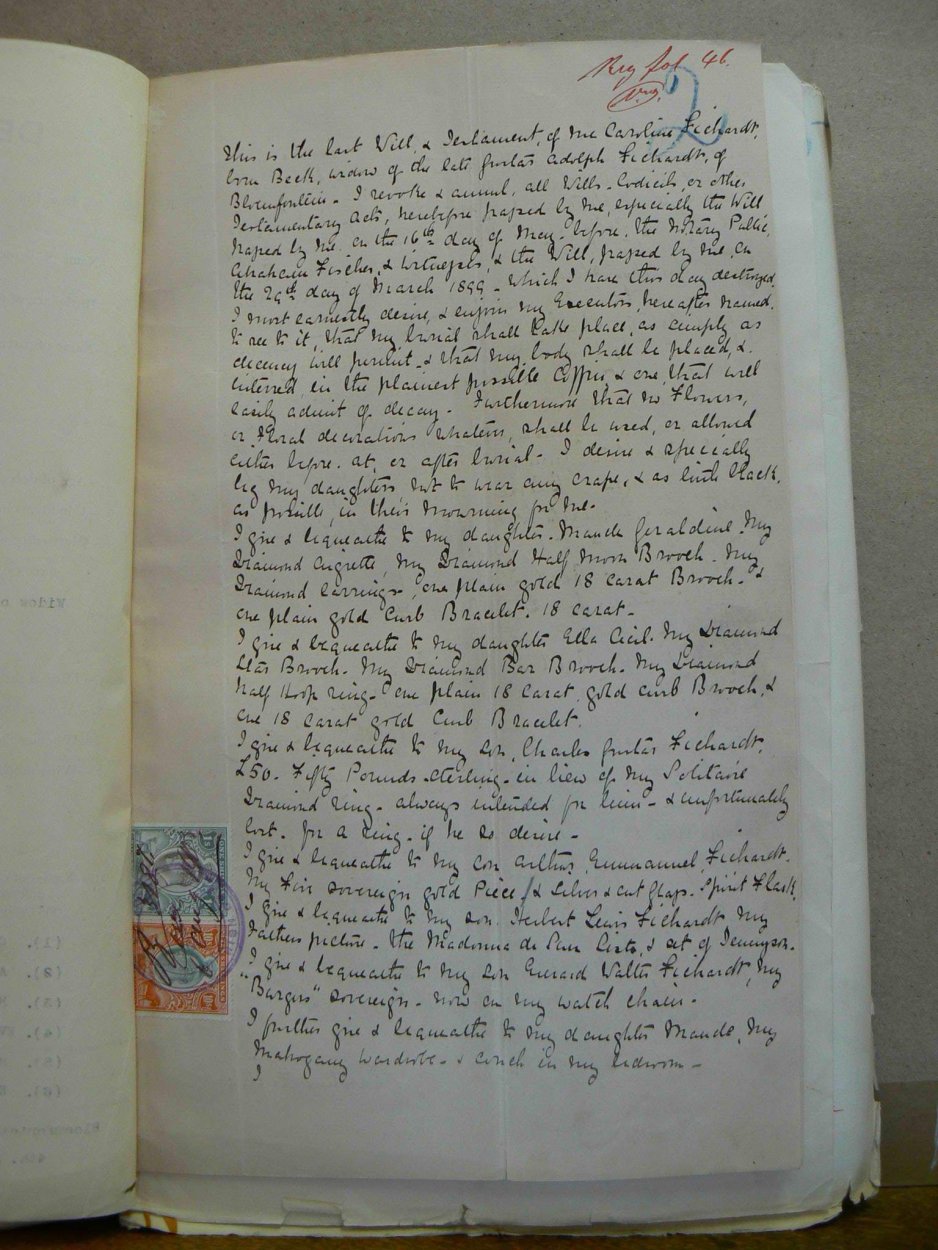 Reg fol 46.
2
This is the last Will, & Testament, of me Caroline Fichardt,
born Beck, widow of the late Gustav Adolph Fichardt, of
Bloemfontein - I revoke & annul, all Wills - Codicils, or other
Testamentary Acts, heretofore passed by me, especially the Will
passed by me on the 16th day of May - before, the Notary Public,
Abraham Fischer, & Witnesses, & the Will, passed by me, on
the 29th day of March 1899 - which I have this day destroyed.
I most earnestly desire, & enjoin my Executors, hereafter named.
to see to it, that my burial shall take place, as simply as
decency will permit. & that my body shall be placed, &
interred, in the plainest possible Coffin, & one, that will
easily admit of decay - Furthermore that no Flowers,
or Floral decorations whatever, shall be used, or allowed
either before. at, or after burial - I desire & specially
beg my daughters not to wear any crape, & as little black,
as possible, in their mourning for me -
I give & bequeathe to my daughter - Maude Geraldine - My
Diamond Aigrette, my Diamond Half Moon Brooch. My
Diamond Earrings, one plain gold 18 carat Brooch - &
one plain gold Curb Bracelet. 18 Carat -
I give & bequeathe to my daughter Ella Cecil. My Diamond
Star Brooch - My Diamond Bar Brooch - My Diamond
half Hoop ring - one plain 18 Carat gold curb Brooch, &
one 18 carat gold Curb Bracelet.
I give & bequeathe to my son, Charles Gustav Fichardt,
£50 - Fifty Pounds - sterling - in lieu of my Solitaire
Diamond ring - always intended for him - & unfortunately
lost - for a ring - if he so desire -
I give & bequeathe to my son Arthur, Emmanuel, Fichardt.
My Five sovereign gold Piece, & Silver & cut glass - Spirit Flask,
I give & bequeathe to my son. Herbert Lewis Fichardt my
Fathers picture - the Madonna de San Sisto, & set of Tennyson -
I give & bequeathe to my son Everard Walter Fichardt, my
"Burgers" sovereign - now on my watch chain -
I further give & bequeathe to my daughter Maude, My
Mahogany wardrobe - & couch in my bedroom -
I